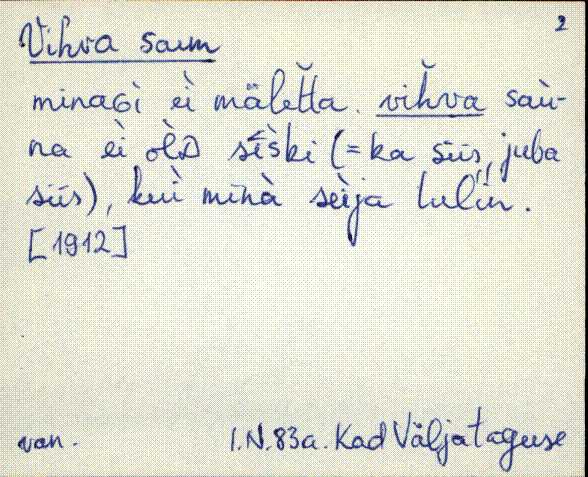 2
Vihva saun
minaGi ei mäleťta. vihva saù-
na ei olD sìiski (=ka siis, juba
siis), kui mina seìja tuliìn.
[1912]
van. I.N.83a. Kad Väljataguse